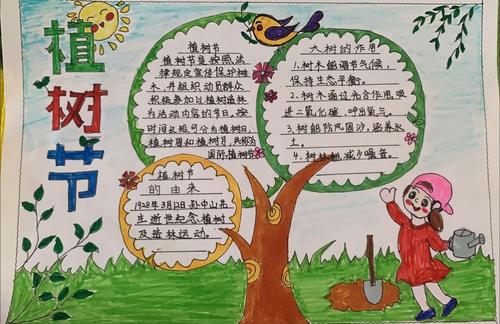 植树节
植树节
植树节是按照法
律规定宣传保护树
木,并组织动员群众
积极参加以植树造林
为活动内容的节日。按
时间长短可分为植树日、
植树周和植树月,共称为
国际植树节
大树的作用
1.树木能调节气候,
保持生态平衡。
2、树木通过光合作用,吸
进二氧化碳,呼出氧气。
3、树能防风固沙,涵养水
土。
4、树林能减少噪音。
植树节
的由来
1928年3月12日孙中山先
生逝世纪念,植树
及造林运动。